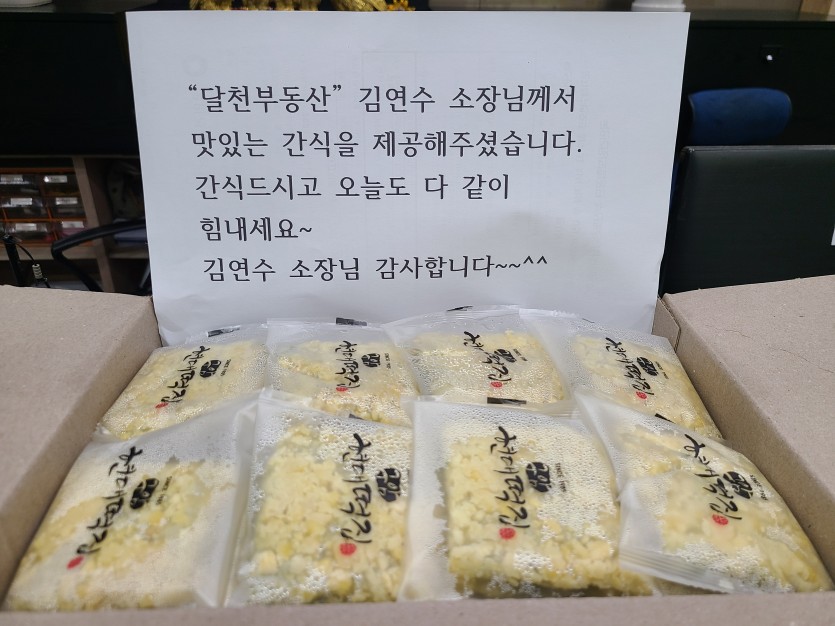 “달천부동산” 김연수 소장님께서
맛있는 간식을 제공해주셨습니다.
간식드시고 오늘도 다 같이
힘내세요~
김연수 소장님 감사합니다~~^^
현대떡집
현대떡집
현대떡집
현대떡집
현대떡집
현대떡집
현대떡집
현대떡집